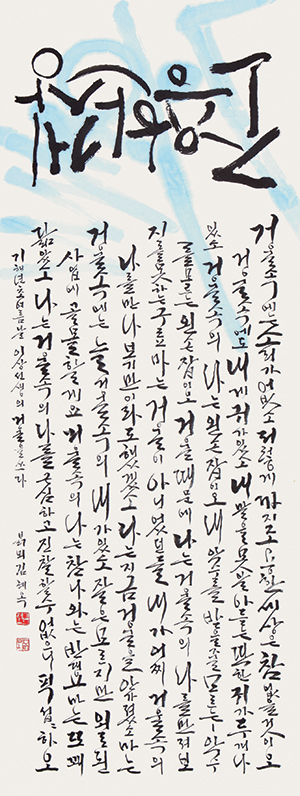 거울속에는소리가없소 저렇게까지조용한세상은 참 없을것이오
거울속에도 내게귀가있소 내말을못알아듣는 딱한귀가두개나
있소 거울속의 나는왼손잡이오 내악수를 받을줄모르는-악수
를모르는 왼손잡이오 거울때문에 나는거울속의 나를만져보
지를못하는구료마는 거울이 아니었던들 내가어찌 거울속의
나를만나보기만이라도했겠소 나는지금거울을안가졌소마는
거울속에는 늘거울속의 내가있소 잘은모르지만 외로된
사업에골몰할게요 거울속의나는 참나와는반대요마는 또꽤
닮았소 나는거울속의 나를 근심하고진찰할수 없으니 퍽섭섭하오
기해년초여름날 이상선생의 거울을쓰다